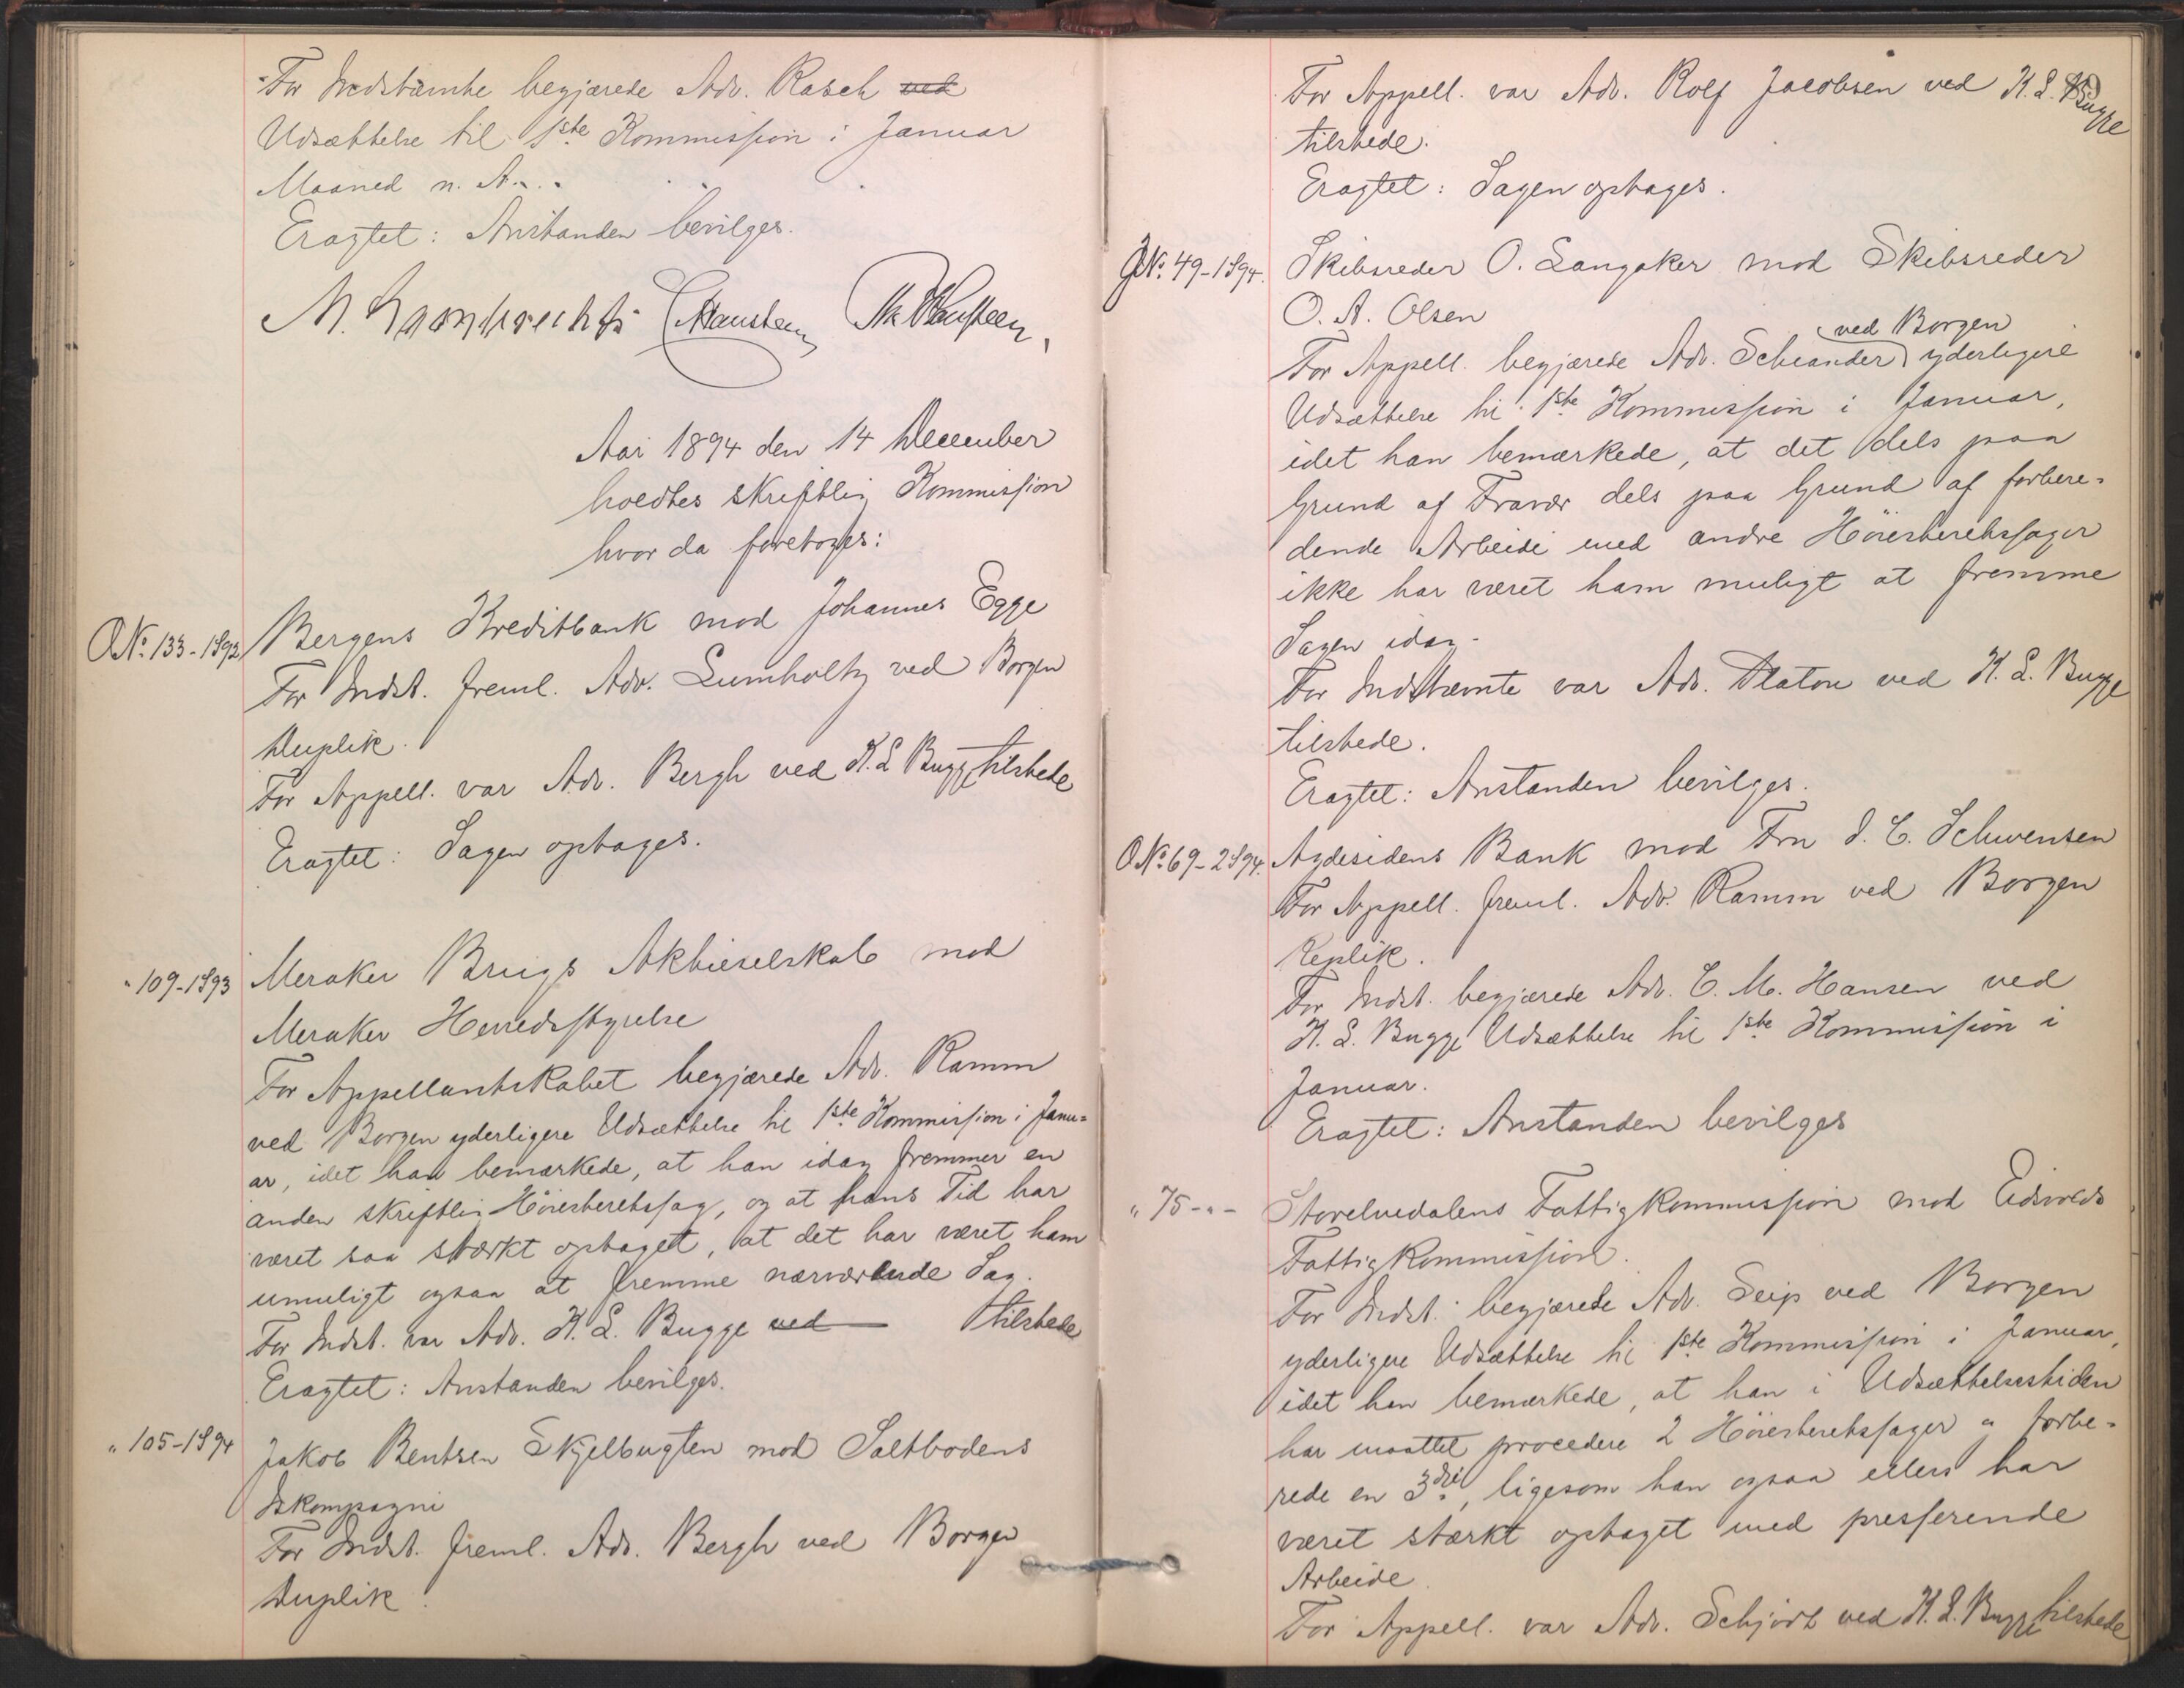 For Indstævnte begjærede Adv. Rasch ved
Udsættelse til 1ste Kommission i Januar
Maaned n. A.
Eragtet: Anstanden bevilges.
Aar 1894 den 14 December
holdtes skriftlig Kommission
hvor da foretoges:
O№ 133-1892 Bergens Kreditbank mod Johannes Egge
For Indst. freml. Adv. Lumholtz ved Borgen
Duplik.
For Appell. var Adv. Bergh ved K. L. Bugge tilstede
Eragtet: Sagen optages.
" 109-1893 Meraker Brugs Aktieselskab mod
Meraker Herredsstyrelse
For Appellantskabet begjærede Adv. Ramm
ved Borgen yderligere Udsættelse til 1ste Kommission i Janu-
ar, idet han bemærkede, at han idag fremmer en
anden skriftlig Höiesteretssag, og at hans Tid har
været saa stærkt optaget, at det har været ham
umuligt ogsaa at fremme nærværende Sag.
For Indst. var Adv. K. L. Bugge ved tilstede
Eragtet: Anstanden bevilges.
" 105-1894 Jakob Bentsen Skjelbugten mod Saltbodens
Iskompagni
For Indst. freml. Adv. Bergh ved Borgen
Duplik.
For Appell. var Adv. Rolf Jacobsen ved K. L. Bugge
tilstede.
Eragtet: Sagen optages.
№ 49-1894. Skibsreder O. Langaker mod Skibsreder
O. A. Olsen
ved Borgen
For Appell. begjærede Adv. Scheander yderligere
Udsættelse til 1ste Kommission i Januar,
idet han bemærkede, at det dels paa
Grund af Fravær dels paa Grund af forbere-
dende Arbeide med andre Höiesteretssager
ikke har været ham muligt at fremme
Sagen idag.
For Indstævnte var Adv. Platou ved K. L. Bugge
tilstede.
Eragtet: Anstanden bevilges.
O№ 69-2894. Agdesidens Bank mod Fru S. C. Schwensen
For Appell. freml. Adv. Ramm ved Borgen
Replik.
For Indst. begjærede Adv. C. M. Hansen ved
K. L. Bugge Udsættelse til 1ste Kommission i
Januar.
Eragtet: Anstanden bevilges
" 75-"- Storelvedalens Fattigkommission mod Eidsvolds
Fattigkommission.
For Indst. begjærede Adv. Seip ved Borgen
yderligere Udsættelse til 1ste Kommission i Januar,
idet han bemærkede, at han i Udsættelsestiden
har maattet procedere 2 Höiesteretssager og forbe-
rede en 3die, ligesom han ogsaa ellers har
været stærkt optaget med presserende
Arbeide.
For Appell. var Adv. Schjödt ved K. L. Bugge tilstede